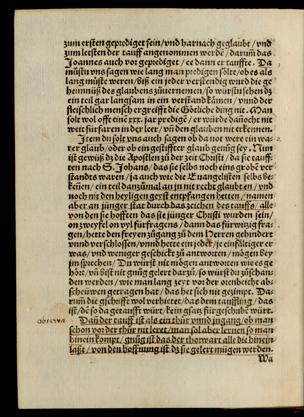 zum ersten geprediget sein/ vnd harnach geglaubt / vnd
zum letsten der tauff angenommen werden/ warũ das
Joannes auch vor geprediget / ee dann er tauffte. Da
můstu vns sagen wie lang man predigen sölte/ ob es als
lang müste weren/ biß ein jeder verstendig wurd die ge
heimnüß des glaubens zůuernemen/ so würstu sehen dz
ein teil gar langsam in ein verstand kämen / vnnd der
fleischlich mensch ergreifft die Götliche ding nit. Man
solt wol offt eine xxx. jar predigẽ / er würde dañocht nit
weit fürfaren in der leer/ vnd den glauben nit erkennen.
Item du solt vns auch sagen ob da not were ein wa-
rer glaub/ oder ob ein gestiffter glaub genůg sey. Nun
ist gewüß dz die Apostlen zů der zeit Christi / da sie tauff-
ten nach S. Johans/ das sie selbs noch eine grobẽ ver
standes waren / ja auch wie die Euangelisten selbs be
kennen/ ein teil danzůmal an jn nit recht glaubten / vnd
noch nit den heyligen geyst entpfangen hetten / namen
aber an jünger statt durch das zeichen des tauffs/ alle
von den sie hofften das sie jünger Christi wurden sein/
on zweyfel on vyl fürfragens / dann das fürwitzig fra
gen/ hette den freyen zůgang zů dem Herren gehindert
vnnd verschlossen/ vnnd hette ein jeder/ je einfältiger er
was/ vnd weniger geschickt zů antworten / mögen bey
jm sprechen/ Du würst nit mögen antworten wie es ge
hört/ vñ bist nit gnůg gelert darzů/ so würst du zůschan
den werden / wie man lang zeyt vor der orenbeicht ab-
scheüwen getragen hat / das het sich nit gezimpt. Da-
rum̃ die gschrifft wol verhietet/ das dem tauffling/ das
ist/ dẽ so da getaufft würt/ kein gsatz fürgeschriben würt.
Dann der tauff ist als ein thür vnnd ingang/ ob man
schon vor der thür nit leret/ man sol aber lernen so man
hinein kompt/ gnůg ist das der thorwart alle die hinein
laßt / von den hoffnung ist dz sie gelert mügen werden.
Wa